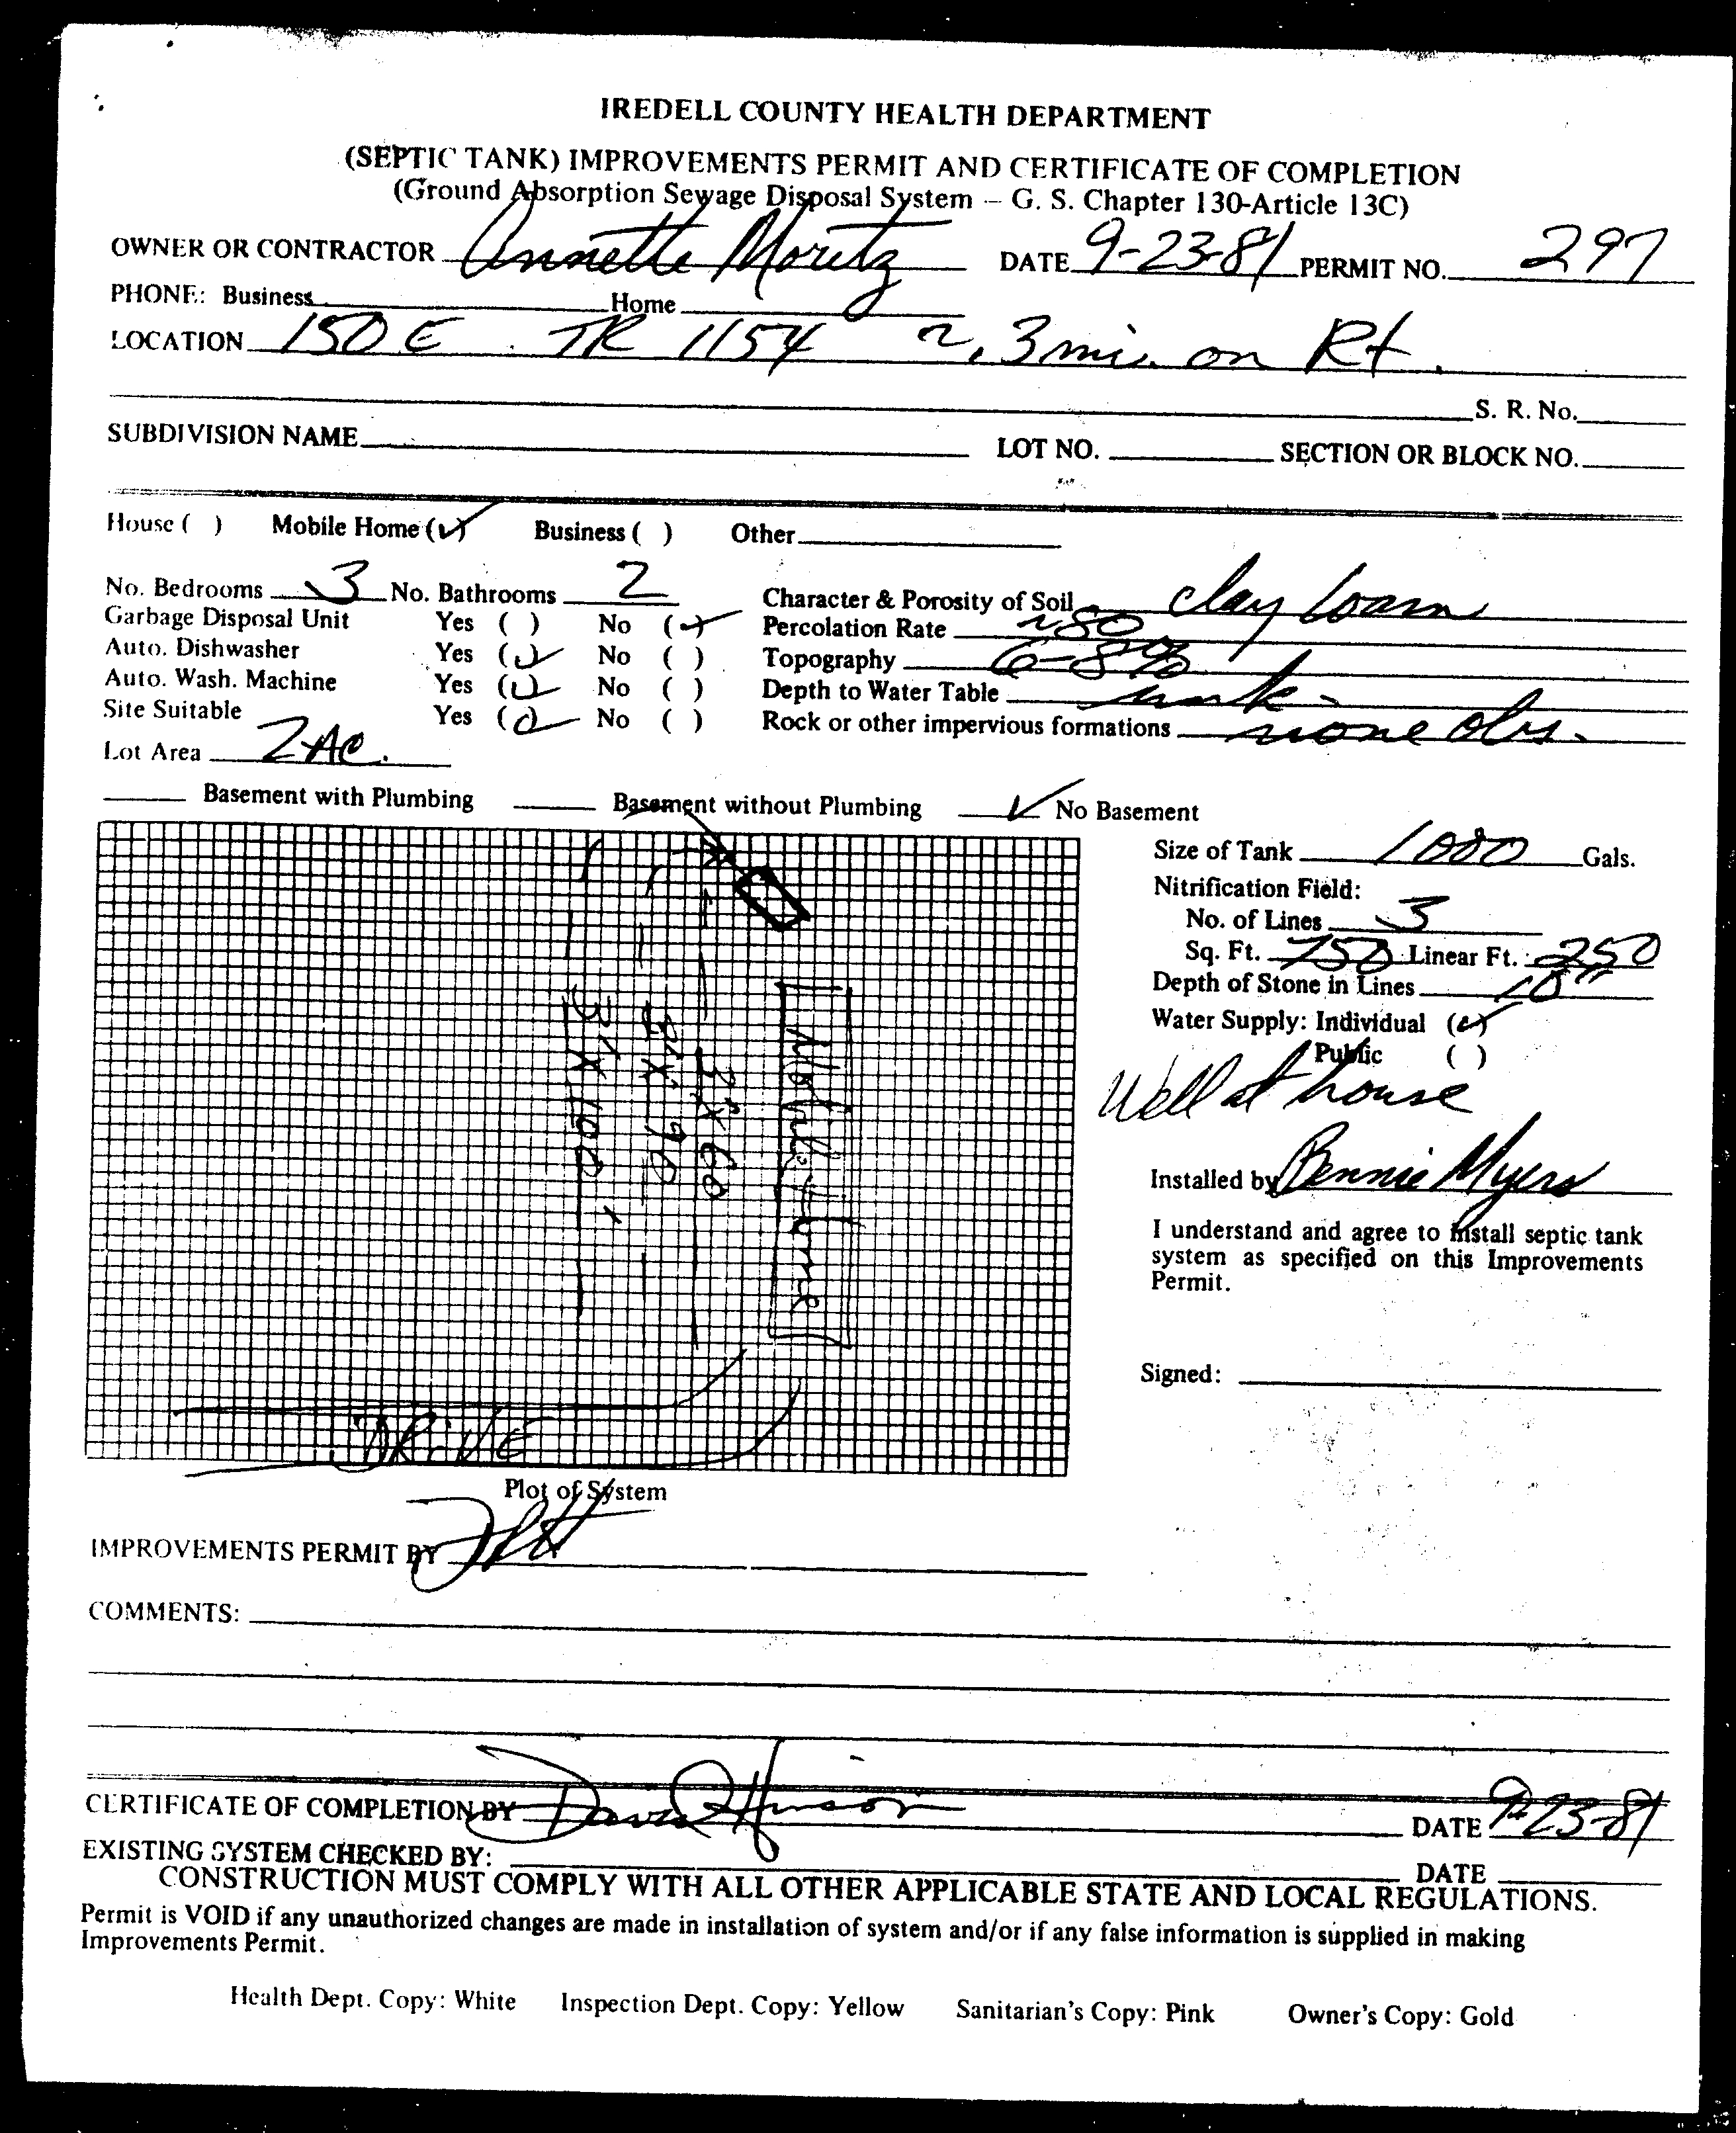 IREDELL COUNTY HEALTH DEPARTMENT
(SEPTIC TANK) IMPROVEMENTS PERMIT AND CERTIFICATE OF COMPLETION
(Ground Absorption Sewage Disposal System – G. S. Chapter 130-Article 13C)
OWNER OR CONTRACTOR Annette Moritz DATE 9-23-81 PERMIT NO. 297
PHONE: Business Home
LOCATION 150 E TR 1154 ~ .3 mi. on Rt.
S. R. No.
SUBDIVISION NAME LOT NO. SECTION OR BLOCK NO.
House ( ) Mobile Home (✓) Business ( ) Other
No. Bedrooms 3 No. Bathrooms 2 Character & Porosity of Soil clay loam
Garbage Disposal Unit Yes ( ) No (✓) Percolation Rate ~50
Auto. Dishwasher Yes (✓) No ( ) Topography 6-8%
Auto. Wash. Machine Yes (✓) No ( ) Depth to Water Table unk-
Site Suitable Yes (✓) No ( ) Rock or other impervious formations none obs.
Lot Area 2 AC.
Basement with Plumbing Basement without Plumbing ✓ No Basement
Size of Tank 1000 Gals.
Nitrification Field:
No. of Lines 3
Sq. Ft. 750 Linear Ft. 250
Depth of Stone in Lines 10"
Water Supply: Individual (✓)
Public ( )
Well at house
Installed by Bennie Myers
I understand and agree to install septic tank
system as specified on this Improvements
Permit.
Signed:
Mobile Home
3' X 60
3' X 90
3' X 100'
DRiVE
Plot of System
IMPROVEMENTS PERMIT BY
COMMENTS:
CERTIFICATE OF COMPLETION BY David Hinson DATE 9-23-81
EXISTING SYSTEM CHECKED BY: DATE
CONSTRUCTION MUST COMPLY WITH ALL OTHER APPLICABLE STATE AND LOCAL REGULATIONS.
Permit is VOID if any unauthorized changes are made in installation of system and/or if any false information is supplied in making
Improvements Permit.
Health Dept. Copy: White Inspection Dept. Copy: Yellow Sanitarian's Copy: Pink Owner's Copy: Gold